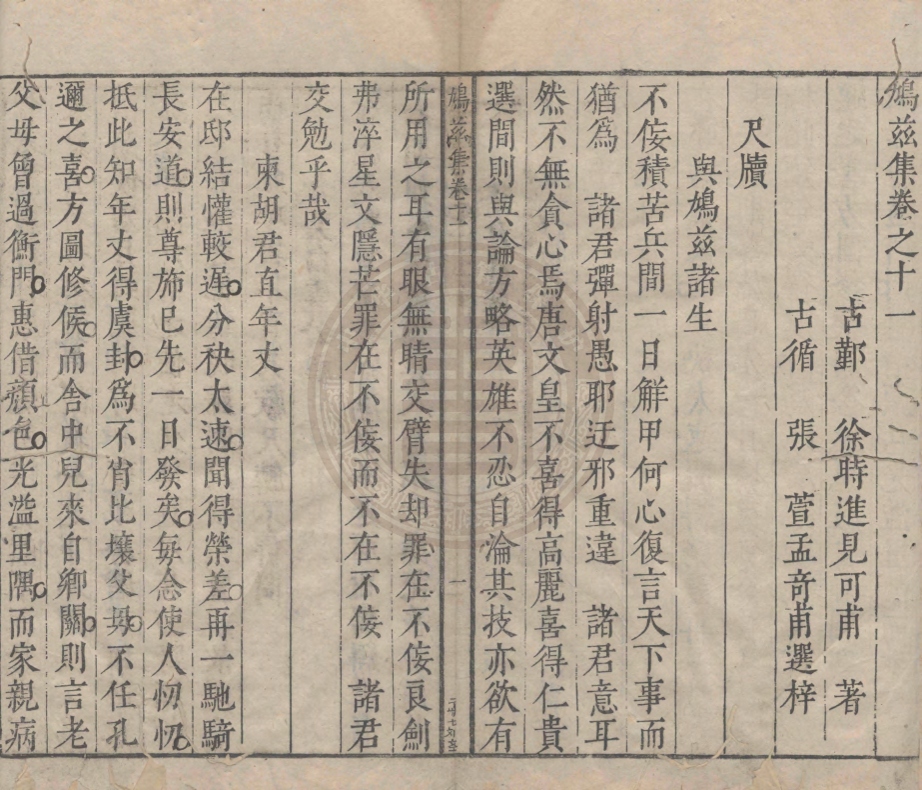 鳩兹集卷之十一
古鄞　徐時進見可甫　著
古循　張　萱孟奇甫選梓
尺牘
與鳩兹諸生
不佞積苦兵間一日解甲何心復言天下事而
猶爲　諸君彈射愚耶迂邪重違　諸君意耳
然不無貪心焉唐文皇不喜得高麗喜得仁貴
選間則與論方略英雄不忍自淪其技亦欲有
鳩兹集卷十一
一
所用之耳有眼無睛交臂失却罪在不佞良劍
弗淬星文隱芒罪在不佞而不在不佞　諸君
交勉乎哉
柬胡君直年丈
在邸結懽較遲分袂太速聞得榮差再一馳騎
長安道則尊斾已先一日發矣每念使人忉忉
抵此知年丈得虞封爲不肖比壤父母不任孔
邇之喜方圖修候而舍中兒來自鄉關則言老
父母曾過衡門惠借顔色光溢里隅而家親病